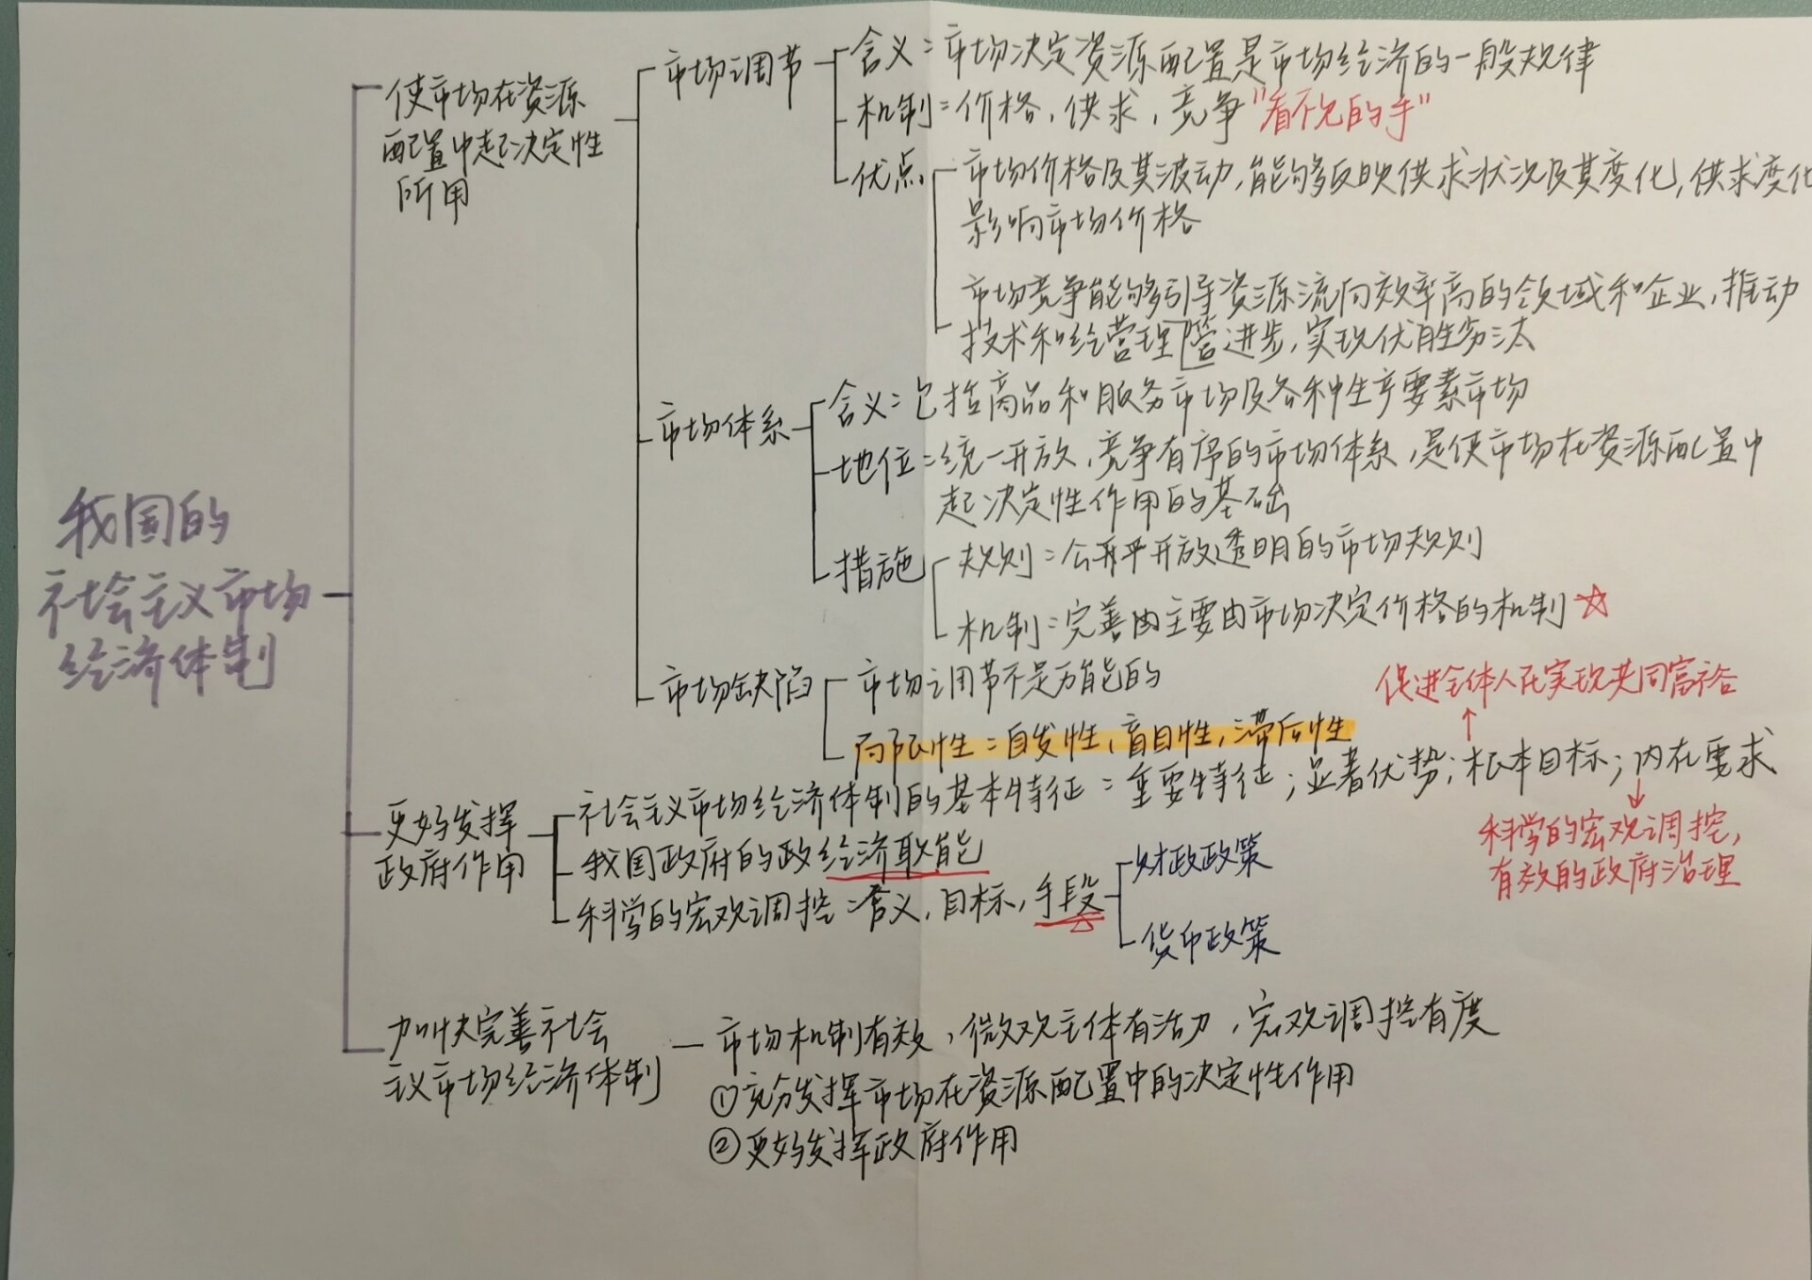 我国的
社会主义市场
经济体制
使市场在资源
配置中起决定性
所用
市场调节
含义：市场决定资源配置是市场经济的一般规律
机制：价格，供求，竞争"看不见的手"
优点
市场价格及其波动，能够反映供求状况及其变化，供求变化
影响市场价格
市场竞争能够引导资源流向效率高的领域和企业，推动
技术和经营理 进步，实现优胜劣汰
市场体系
含义：包括商品和服务市场及各种生产要素市场
地位：统一开放，竞争有序的市场体系，是使市场在资源配置中
起决定性作用的基础
措施
规则：公平开放透明的市场规则
机制：完善由主要由市场决定价格的机制☆
市场缺陷
市场调节不是万能的
局限性：自发性，盲目性，滞后性
更好发挥
政府作用
社会主义市场经济体制的基本特征：重要特征；显著优势；根本目标；内在要求
促进全体人民实现共同富裕
↑
↓
科学的宏观调控，
有效的政府治理
我国政府的政经济职能
科学的宏观调控：含义，目标，手段
财政政策
货币政策
加快完善社会
主义市场经济体制
市场机制有效，微观主体有活力，宏观调控有度
①充分发挥市场在资源配置中的决定性作用
②更好发挥政府作用